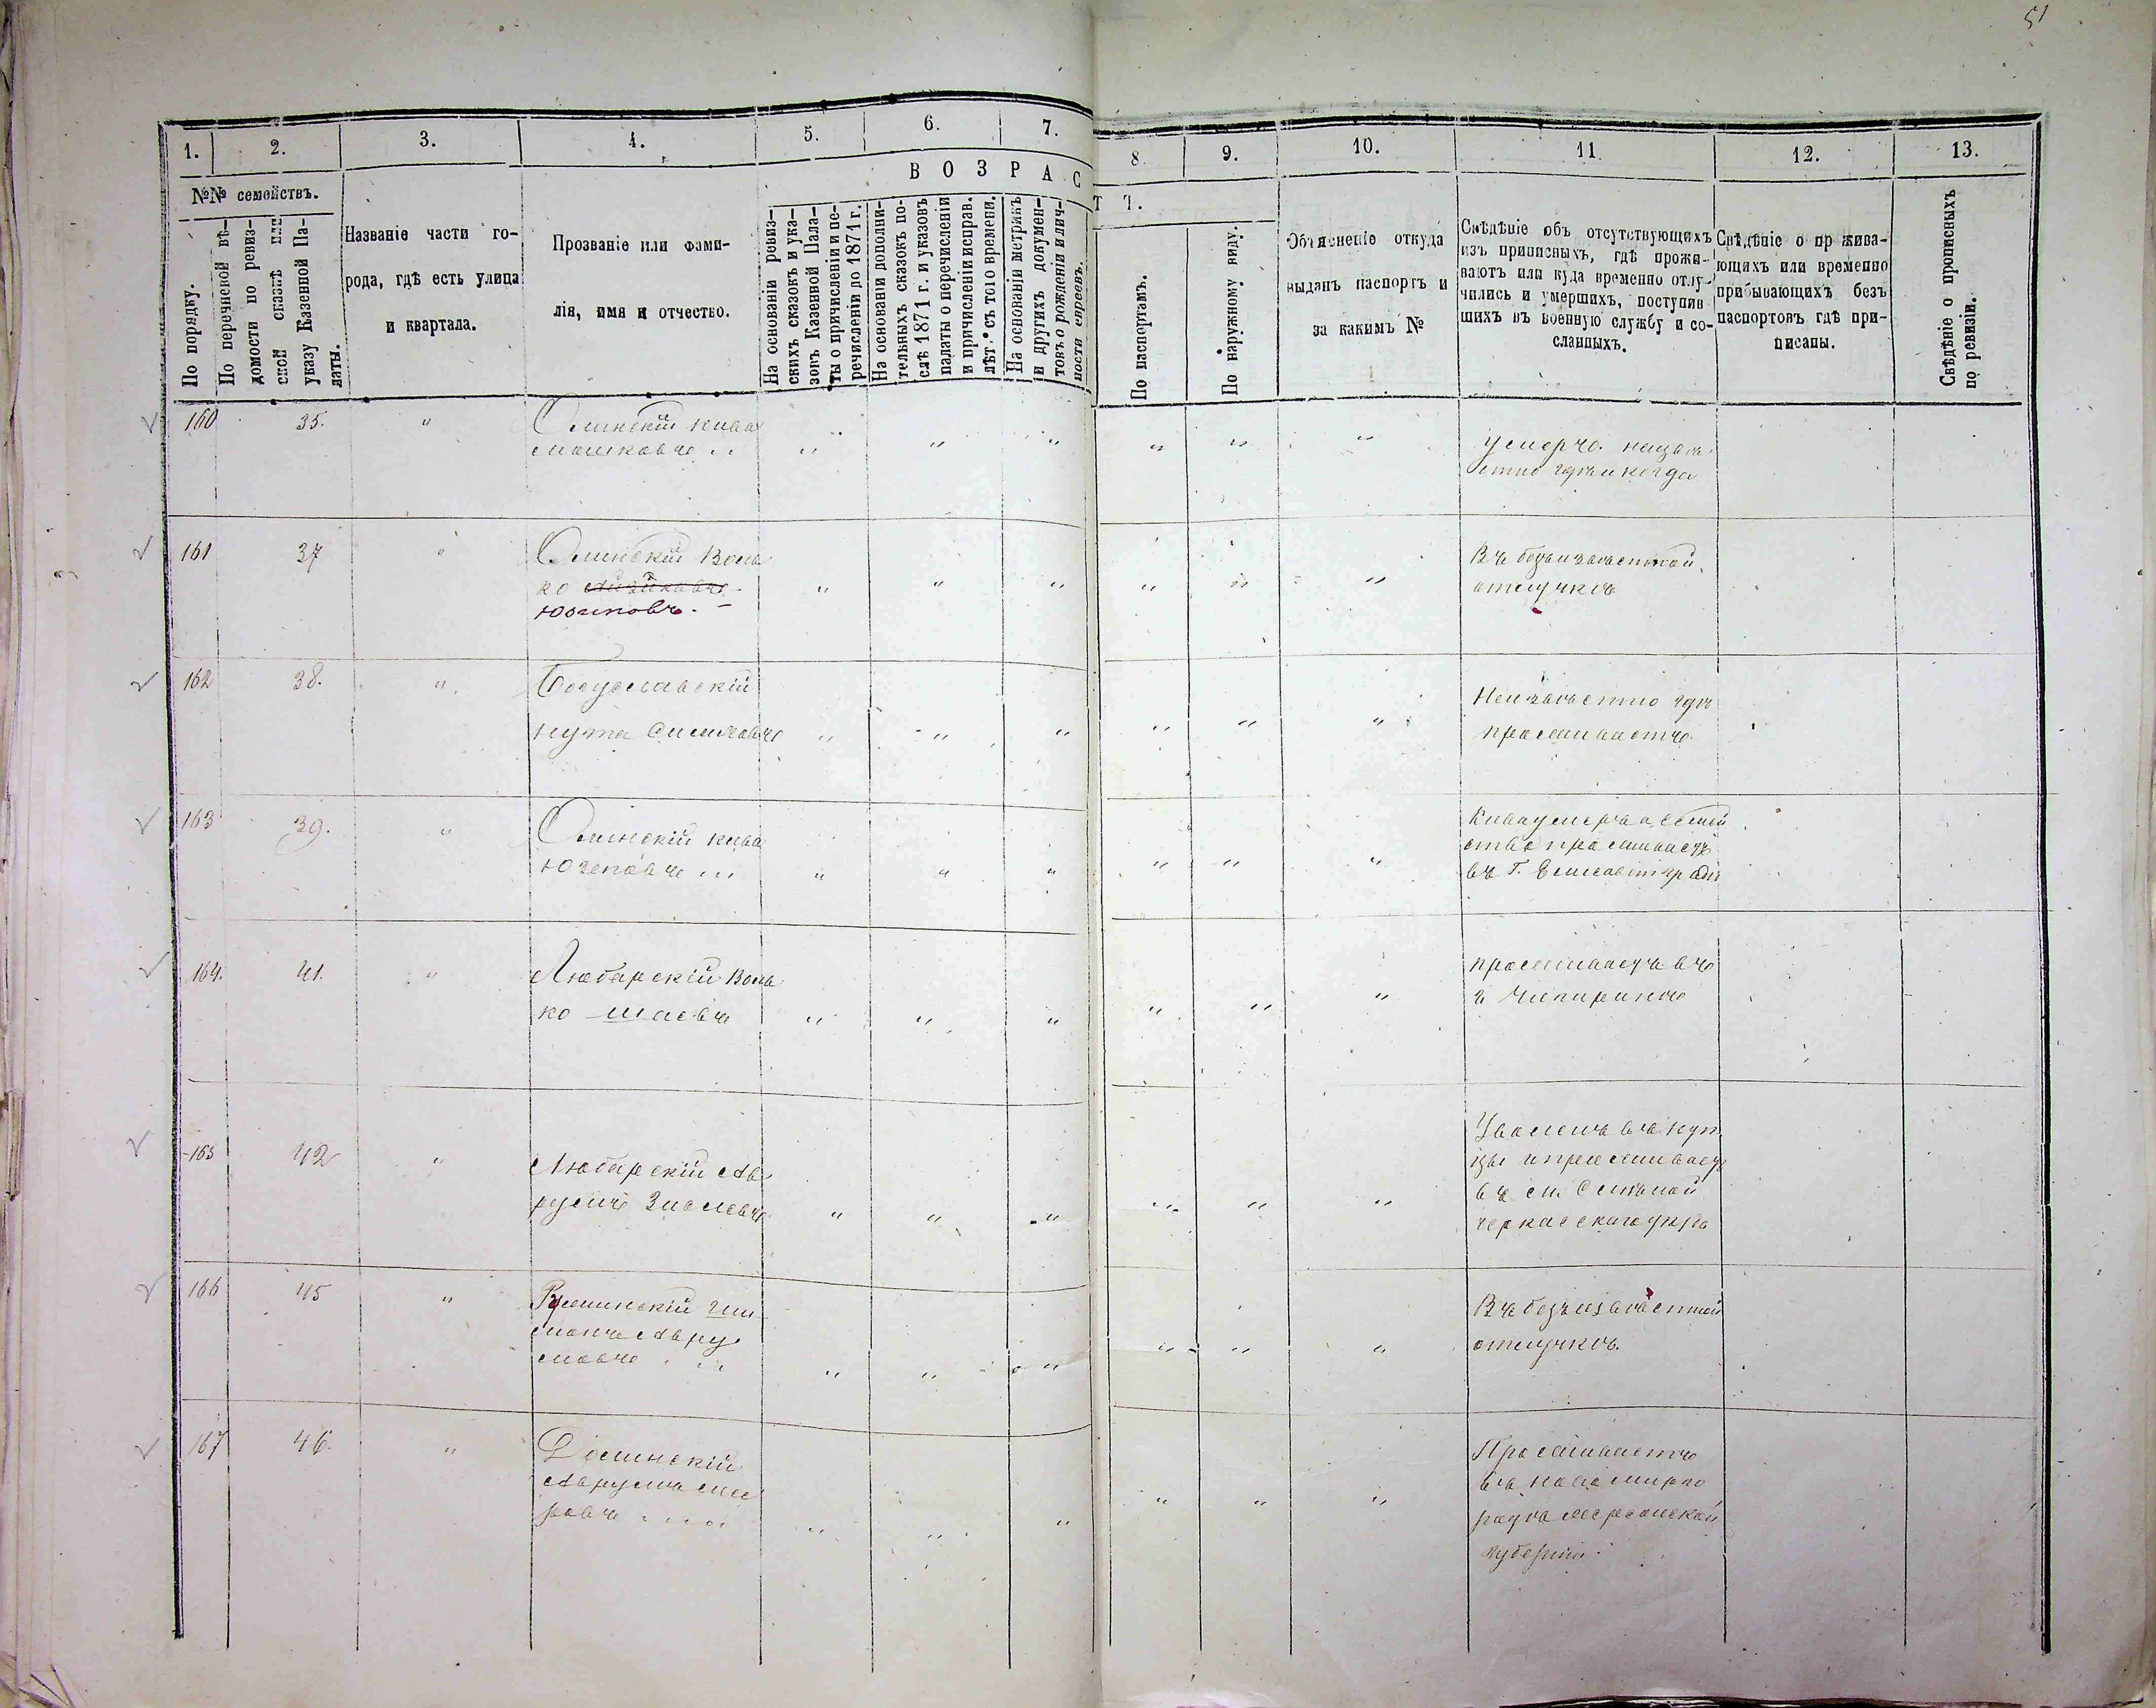 51
1. 2. 3. 4. 5. 6. 7. 8. 9. 10. 11. 12. 13.
№№ семействъ.
По порядку.
По перечневой вѣ-
домости по ревиз-
ской сказкѣ или
указу Казенной Па-
латы.
Названіе части го-
рода, гдѣ есть улица
и квартала.
Прозваніе или фами-
лія, имя и отчество.
ВОЗРАСТЪ.
На основаніи ревиз-
скихъ сказокъ и ука-
зовъ Казенной Пала-
ты о причисленіи и пе-
речисленіи до 1871 г.
На основаніи дополни-
тельныхъ сказокъ по-
слѣ 1871 г. и указовъ
палаты о перечисленіи
и причисленіи исправ.
лѣт. съ того времени.
На основаніи метрикъ
и другихъ докумен-
товъ о рожденіи и лич-
ности евреевъ.
По паспортамъ.
По наружному виду.
Объясненіе откуда
выданъ паспортъ и
за какимъ №
Свѣдѣніе объ отсутствующихъ
изъ приписныхъ, гдѣ прожи-
ваютъ или куда временно отлу-
чились и умершихъ, поступив
шихъ въ военную службу и со-
сланныхъ.
Свѣдѣніе о прожива-
ющихъ или временно
прибывающихъ безъ
паспортовъ гдѣ при-
писаны.
Свѣдѣніе о прописныхъ
по ревизіи.
160 35. " Слинскій Кива
Мошковъ " " " " " "
умеръ. неизвѣ
стно гдѣ и когда
161 37 " Слинскій Воль
ко Айзиковъ
Юзиповъ. " " " " " "
Въ безъизвѣстной
отлучкѣ
162 38. " Богуславскій
Нута " " " " " "
Неизвѣстно гдѣ
проживаетъ
163 39. " Слинскій Кива
Юзеповъ " " " " " "
Кива умеръ а семей
ство проживаетъ
въ г. Елисаветградѣ
164. 41. " Любарскій Воль
ко Шаевъ " " " " " "
проживаетъ въ
г Чигиринѣ
165 42 " Любарскій Ав
румъ " " " " " "
въ куп
цы и проживаетъ
въ м. Смѣлой
черкасскаго уѣзда
166 45 " Ши
монъ Авру
мовъ " " " " " "
Въ безъизвѣстной
отлучкѣ.
167 46. " Долинскій
Аврумъ Мее
ровъ " " " " " "
Проживаетъ
въ Новомирго
родѣ херсонской
губерніи.